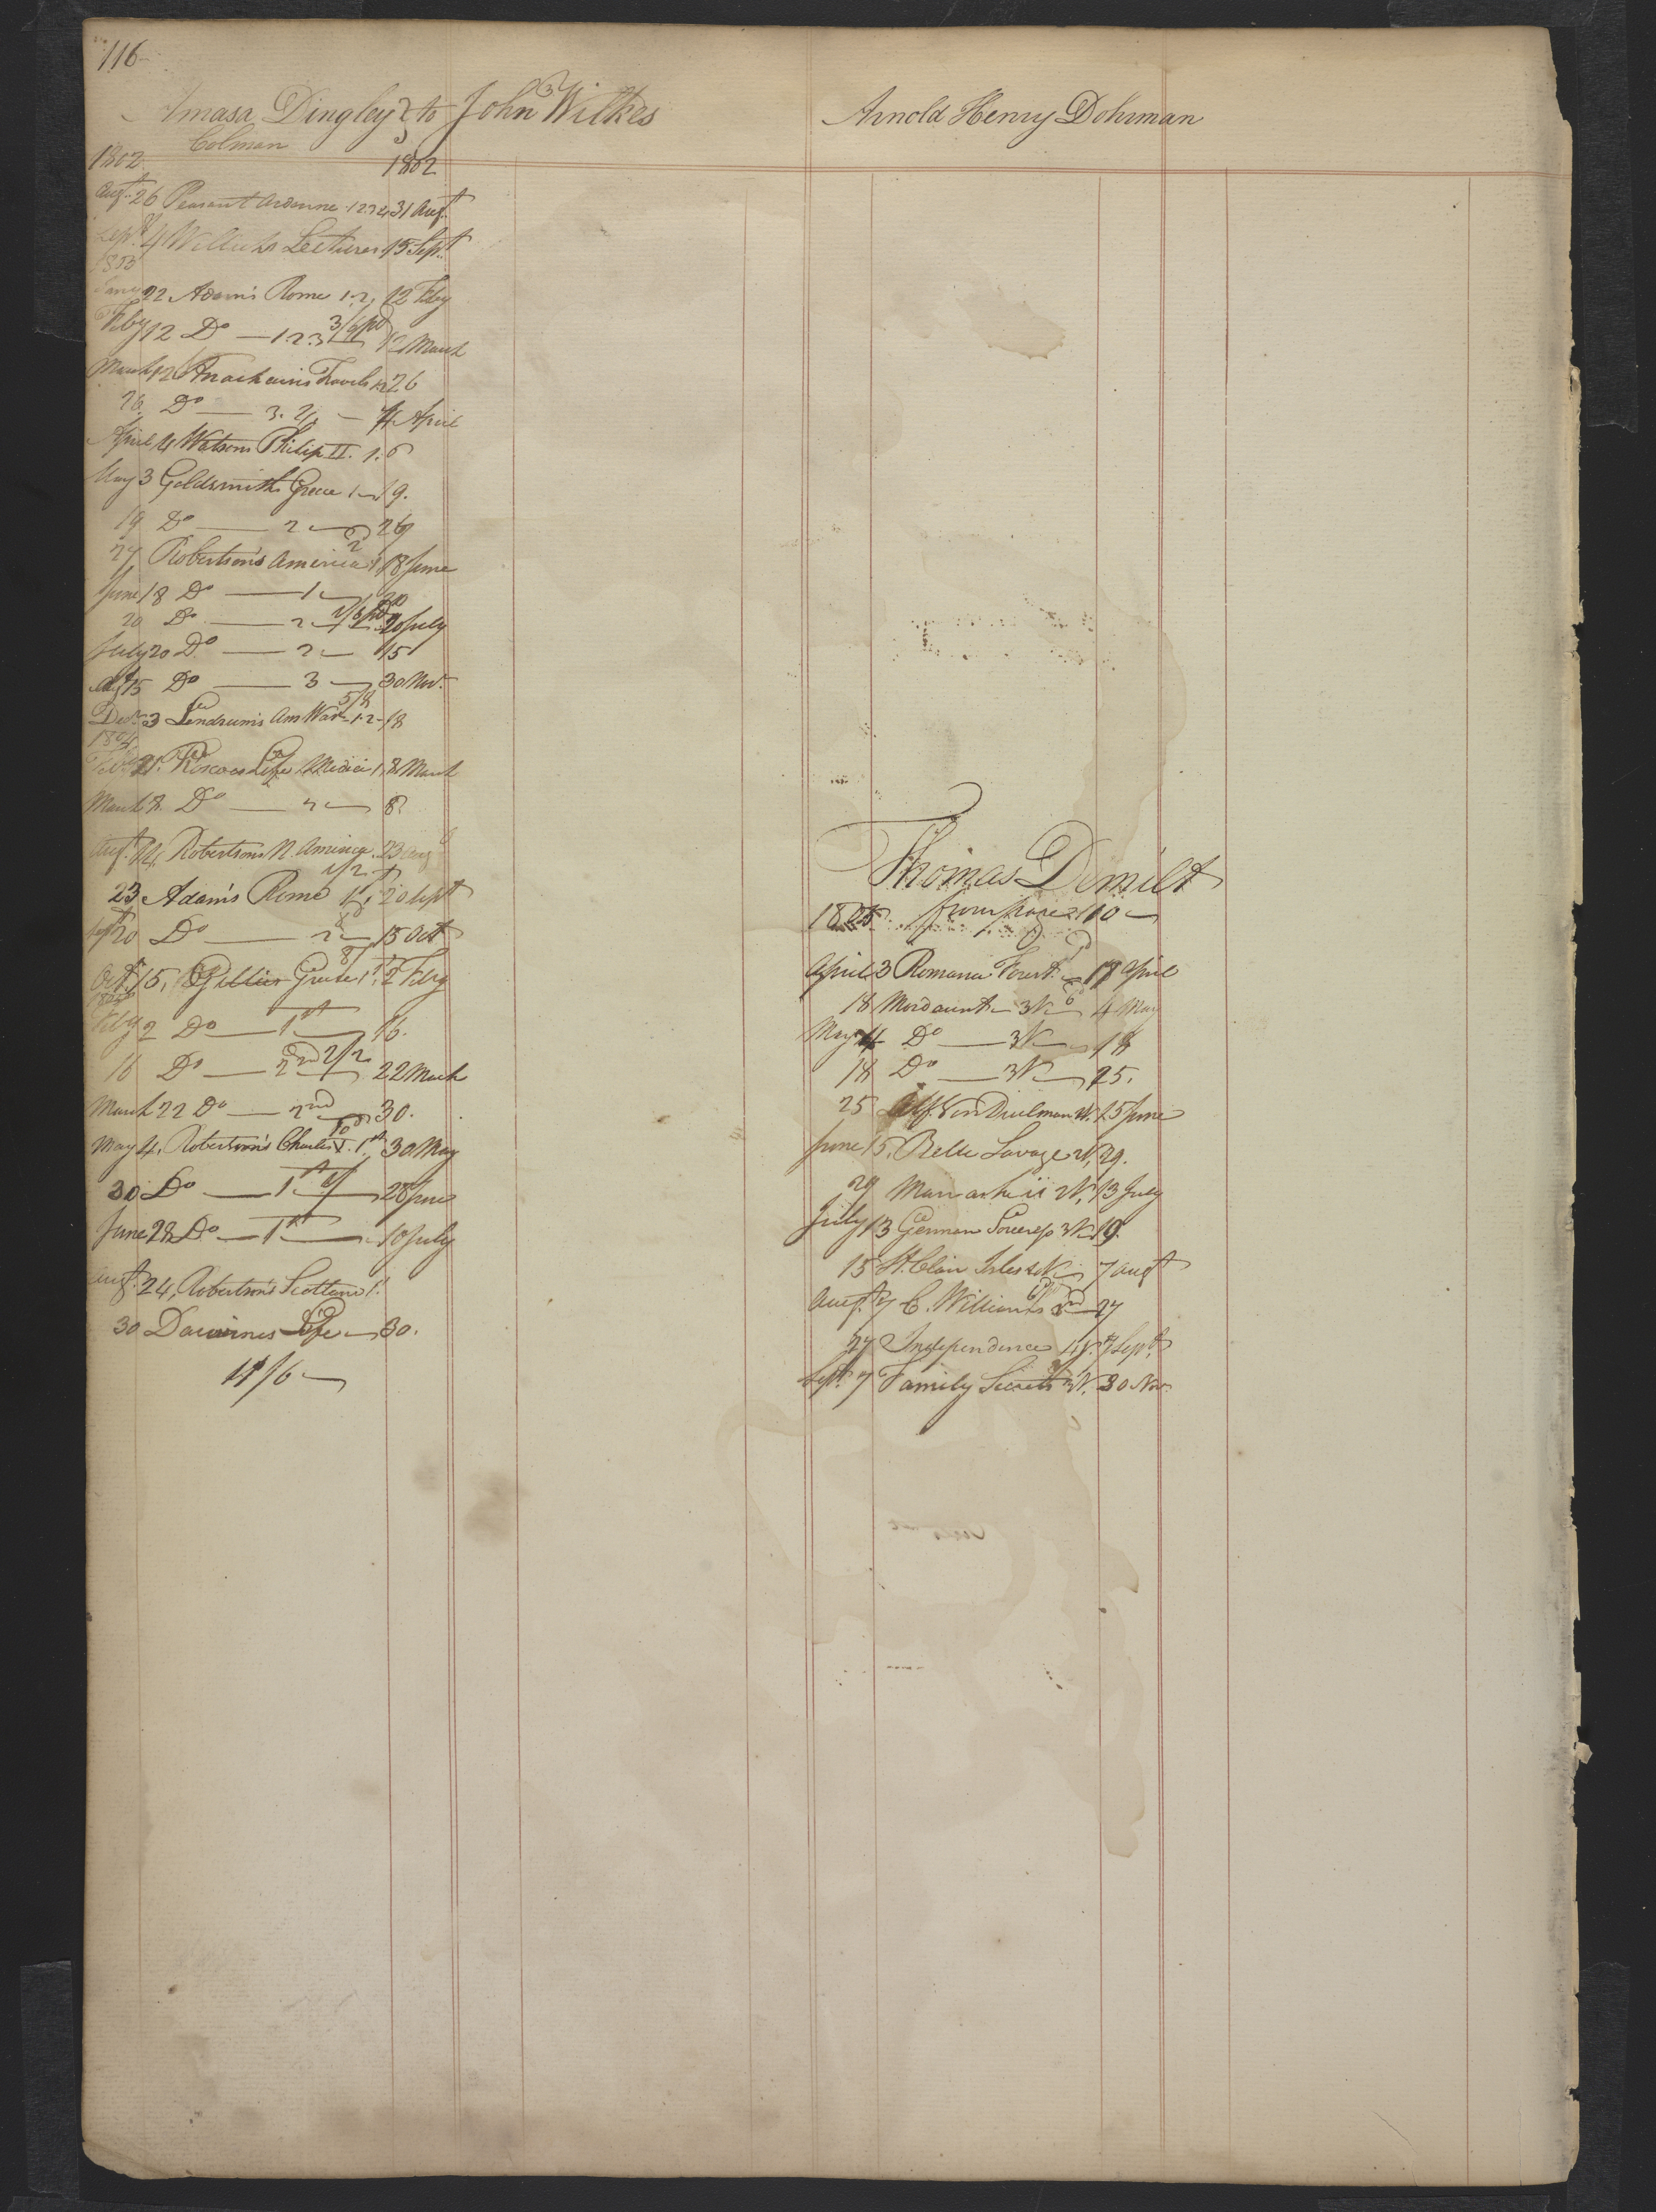 116
Amasa Dingley to John Wilkes
Colman
1802 1802
Augt. 26 Peasant Ardenne 1.2.3.4 31 Augt.
Sept. 4 Willichs Lectures 15 Sept.
1803
Jany 22 Adam's Rome 1.2. 12 Feby
Feby 12 Do — 1 2 3 3/6 pd 12 March
March 12 Anacharsis Travels 1.2 26
26 Do — 3. 4 — 4 April
April 4 Watsons Philip II. 1. 6
May 3 Goldsmith Greece 1 — 19.
19 Do — 2 — 26
27 Robertson's America 1 18 June
June 18 Do — 1 — 20
20 Do — 2 — 20 July
July 20 Do — 2 — 15
Augt 15 Do — 3 — 30 Nov.
Decr. 3 Lendrum's Am War 1.2 18
5/8
1804
21. Roscoes Life Medici 1. 8 March
March 8. Do — 2 — 8
Augt. Robertsons N. America 23 Aug
23 Adam's Rome 1 20 Sept
Sept 20 Do — 2 — 15 Oct
Octr. 15, Gillies Greece 1st. 2 Feby
1805
Feby 2 Do — 1st — 16.
16 Do — 2nd 2/2 22 March
March 22 Do — 2nd — 30.
May 4, Robertson's Charles V. 1st 30 May
30 Do — 1st — 28 June
June 28 Do — 1st — 10 July
Augt. 24, Robertson's Scotland 1.
30 Darwines Life — 30.
11/6 —
Arnold Henry Dohrman
Thomas Demilt
1805. from page 110 —
April 3 Romance Forest — 18 April
18 Mordaunt — 3V — 4 May
May 4 Do — 3V — 18
18 Do — 3V — 25.
25 Alf Von Duelman V. 15 June
June 15, Belle Savage 2V, 29.
29 2V, 13 July
July 13 German Sorceress 3V 19.
15 St. Clair Isles 7 Augt
Augt. 7 C. Williams 27
27 Independence 1V. 7 Sept.
Sept. 7 Family Secrets 3V. 30 Nov.